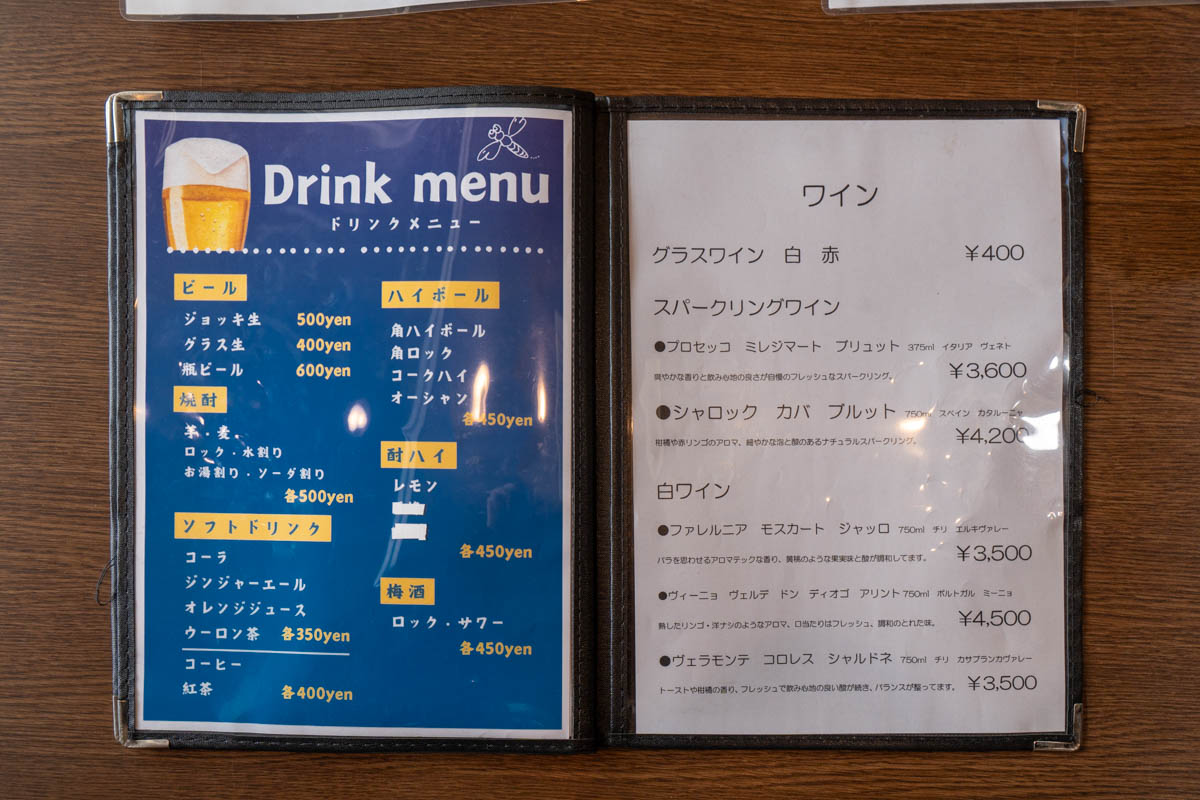 Drink menu
ドリンクメニュー
ビール
ジョッキ生 500yen
グラス生 400yen
瓶ビール 600yen
焼酎
芋・麦
ロック・水割り
お湯割り・ソーダ割り
各500yen
ソフトドリンク
コーラ
ジンジャーエール
オレンジジュース
ウーロン茶 各350yen
コーヒー
紅茶 各400yen
ハイボール
角ハイボール
角ロック
コークハイ
オーシャン
各450yen
酎ハイ
レモン
各450yen
梅酒
ロック・サワー
各450yen
ワイン
グラスワイン 白 赤 ¥400
スパークリングワイン
●プロセッコ ミレジマート ブリュット 375ml イタリア ヴェネト
爽やかな香りと飲み心地の良さが自慢のフレッシュなスパークリング。 ¥3,600
●シャロック カバ ブルット 750ml スペイン カタルーニャ
柑橘や赤リンゴのアロマ、細やかな泡と酸のあるナチュラルスパークリング。 ¥4,200
白ワイン
●ファレルニア モスカート ジャッロ 750ml チリ エルキヴァレー
バラを思わせるアロマテックな香り、黄桃のような果実味と酸が調和してます。 ¥3,500
●ヴィーニョ ヴェルデ ドン ディオゴ アリント 750ml ポルトガル ミーニョ
熟したリンゴ・洋ナシのようなアロマ、口当たりはフレッシュ、調和のとれた味。 ¥4,500
●ヴェラモンテ コロレス シャルドネ 750ml チリ カサブランカヴァレー
トーストや柑橘の香り、フレッシュで飲み心地の良い酸が続き、バランスが整ってます。 ¥3,500